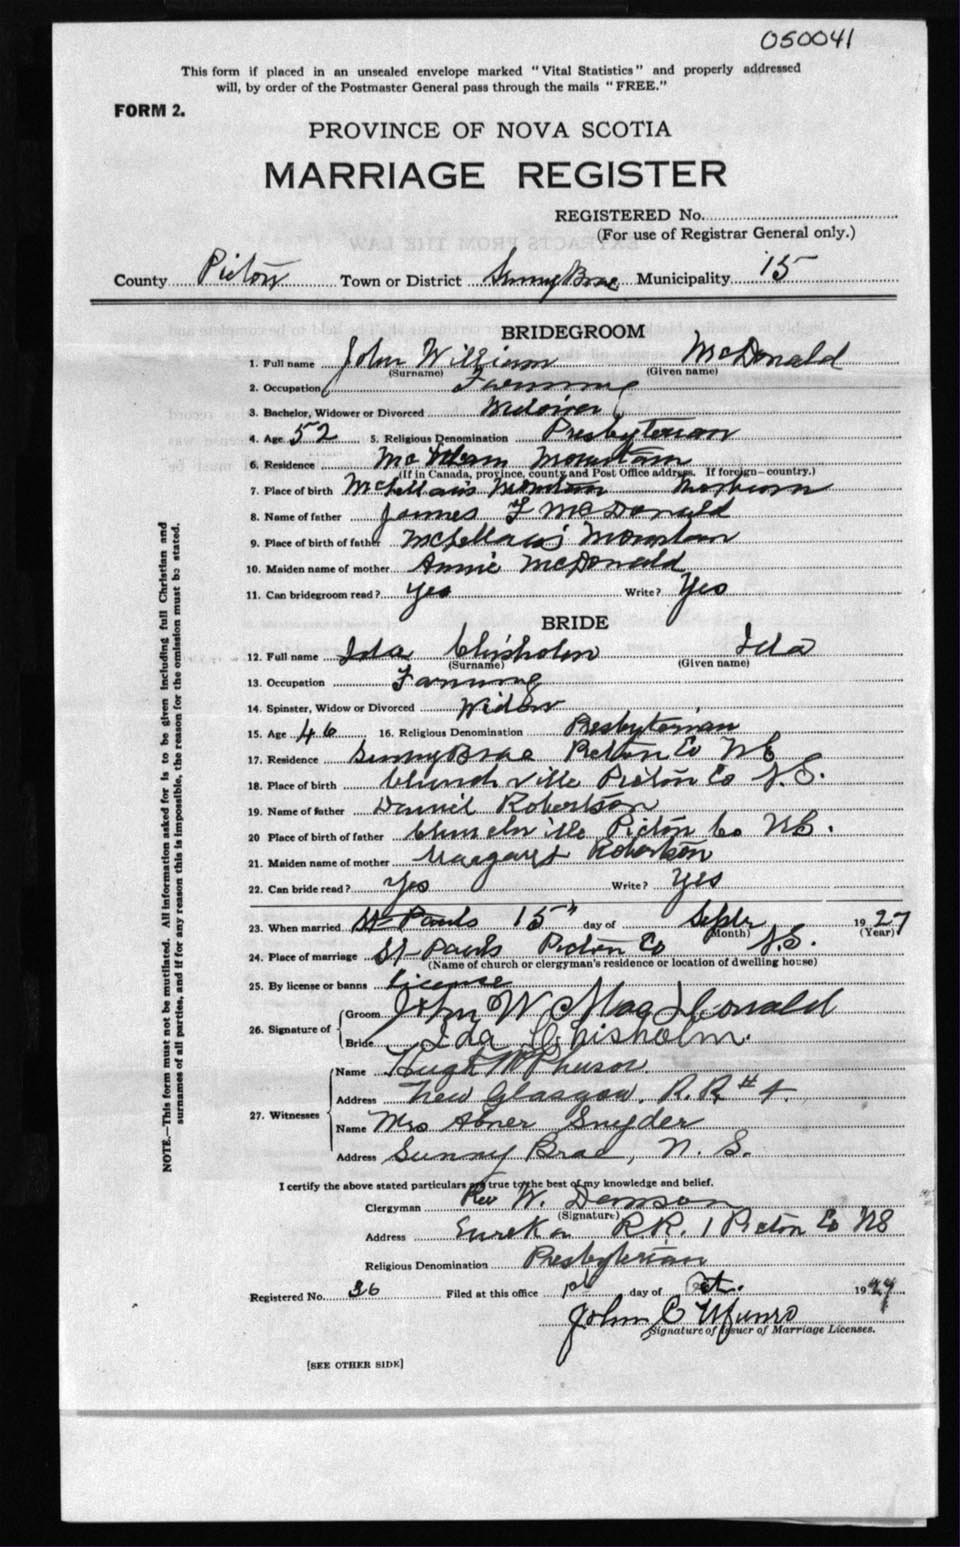 050041
This form if placed in an unsealed envelope marked "Vital Statistics" and properly addressed
will, by order of the Postmaster General pass through the mails "FREE."
FORM 2.
PROVINCE OF NOVA SCOTIA
MARRIAGE REGISTER
REGISTERED No.
(For use of Registrar General only.)
County Pictou Town or District Sunny Brae Municipality 15
BRIDEGROOM
1. Full name John William McDonald
(Surname) (Given name)
2. Occupation Farming
3. Bachelor, Widower or Divorced Widower
4. Age 52 5. Religious Denomination Presbyterian
6. Residence Mountain
(If in Canada, province, county and Post Office address. If foreign—country.)
7. Place of birth McLellan's Mountain
8. Name of father James F McDonald
9. Place of birth of father McLellan's Mountain
10. Maiden name of mother Annie McDonald
11. Can bridegroom read? Yes Write? Yes
BRIDE
12. Full name Ida Chisholm Ida
(Surname) (Given name)
13. Occupation Farming
14. Spinster, Widow or Divorced Widow
15. Age 46 16. Religious Denomination Presbyterian
17. Residence Sunny Brae Pictou Co NS
18. Place of birth Churchville Pictou Co N.S.
19. Name of father Daniel Robertson
20 Place of birth of father Churchville Pictou Co NS.
21. Maiden name of mother Margaret Robertson
22. Can bride read? Yes Write? Yes
23. When married St Pauls 15th day of Septr 1927
(Month) (Year)
24. Place of marriage St Pauls Pictou Co N.S.
(Name of church or clergyman's residence or location of dwelling house)
25. By license or banns License
26. Signature of
Groom John W MacDonald
Bride Ida Chisholm.
27. Witnesses
Name Hugh McPherson.
Address New Glasgow. R.R #4.
Name Mrs Abner Snyder
Address Sunny Brae, N. S.
I certify the above stated particulars are true to the best of my knowledge and belief.
Clergyman Rev W. Dawson
(Signature)
Address Eureka RR. 1 Pictou Co NS
Religious Denomination Presbyterian
Registered No. 36 Filed at this office 1st day of Oct. 1927
John C Munro
Signature of Issuer of Marriage Licenses.
[SEE OTHER SIDE]
NOTE.—This form must not be mutilated. All information asked for is to be given including full Christian and
surnames of all parties, and if for any reason this is impossible, the reason for the omission must be stated.